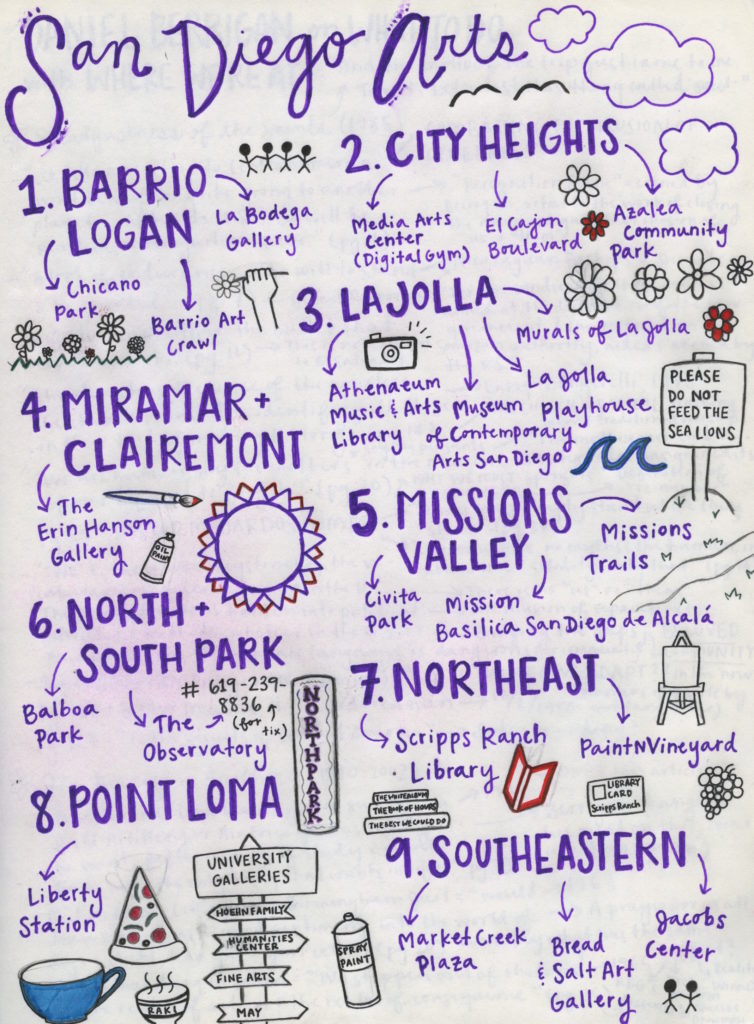 San Diego Arts
1. BARRIO
LOGAN
La Bodega
Gallery
Chicano
Park
Barrio Art
Crawl
2. CITY HEIGHTS
Media Arts
Center
(Digital Gym)
El Cajon
Boulevard
Azalea
Community
Park
3. LAJOLLA
Murals of La Jolla
Athenaeum
Music & Arts
Library
Museum
of Contemporary
Arts San Diego
La Jolla
Playhouse
PLEASE
DO NOT
FEED THE
SEA LIONS
4. MIRAMAR +
CLAIREMONT
The
Erin Hanson
Gallery
OIL
PAINT
5. MISSIONS
VALLEY
Missions
Trails
Civita
Park
Mission
Basilica San Diego de Alcalá
6. NORTH +
SOUTH PARK
Balboa
Park
# 619-239-
8836
(for
tix)
The
Observatory
NORTHPARK
7. NORTHEAST
Scripps Ranch
Library
PaintNVineyard
THE WHITE ALBUM
THE BOOK OF HOURS
THE BEST WE COULD DO
LIBRARY
CARD
Scripps Ranch
8. POINT LOMA
Liberty
Station
UNIVERSITY
GALLERIES
HOEHN FAMILY
HUMANITIES
CENTER
FINE ARTS
MAY
RAKI
SPRAY
PAINT
9. SOUTHEASTERN
Market Creek
Plaza
Bread
& Salt Art
Gallery
Jacobs
Center